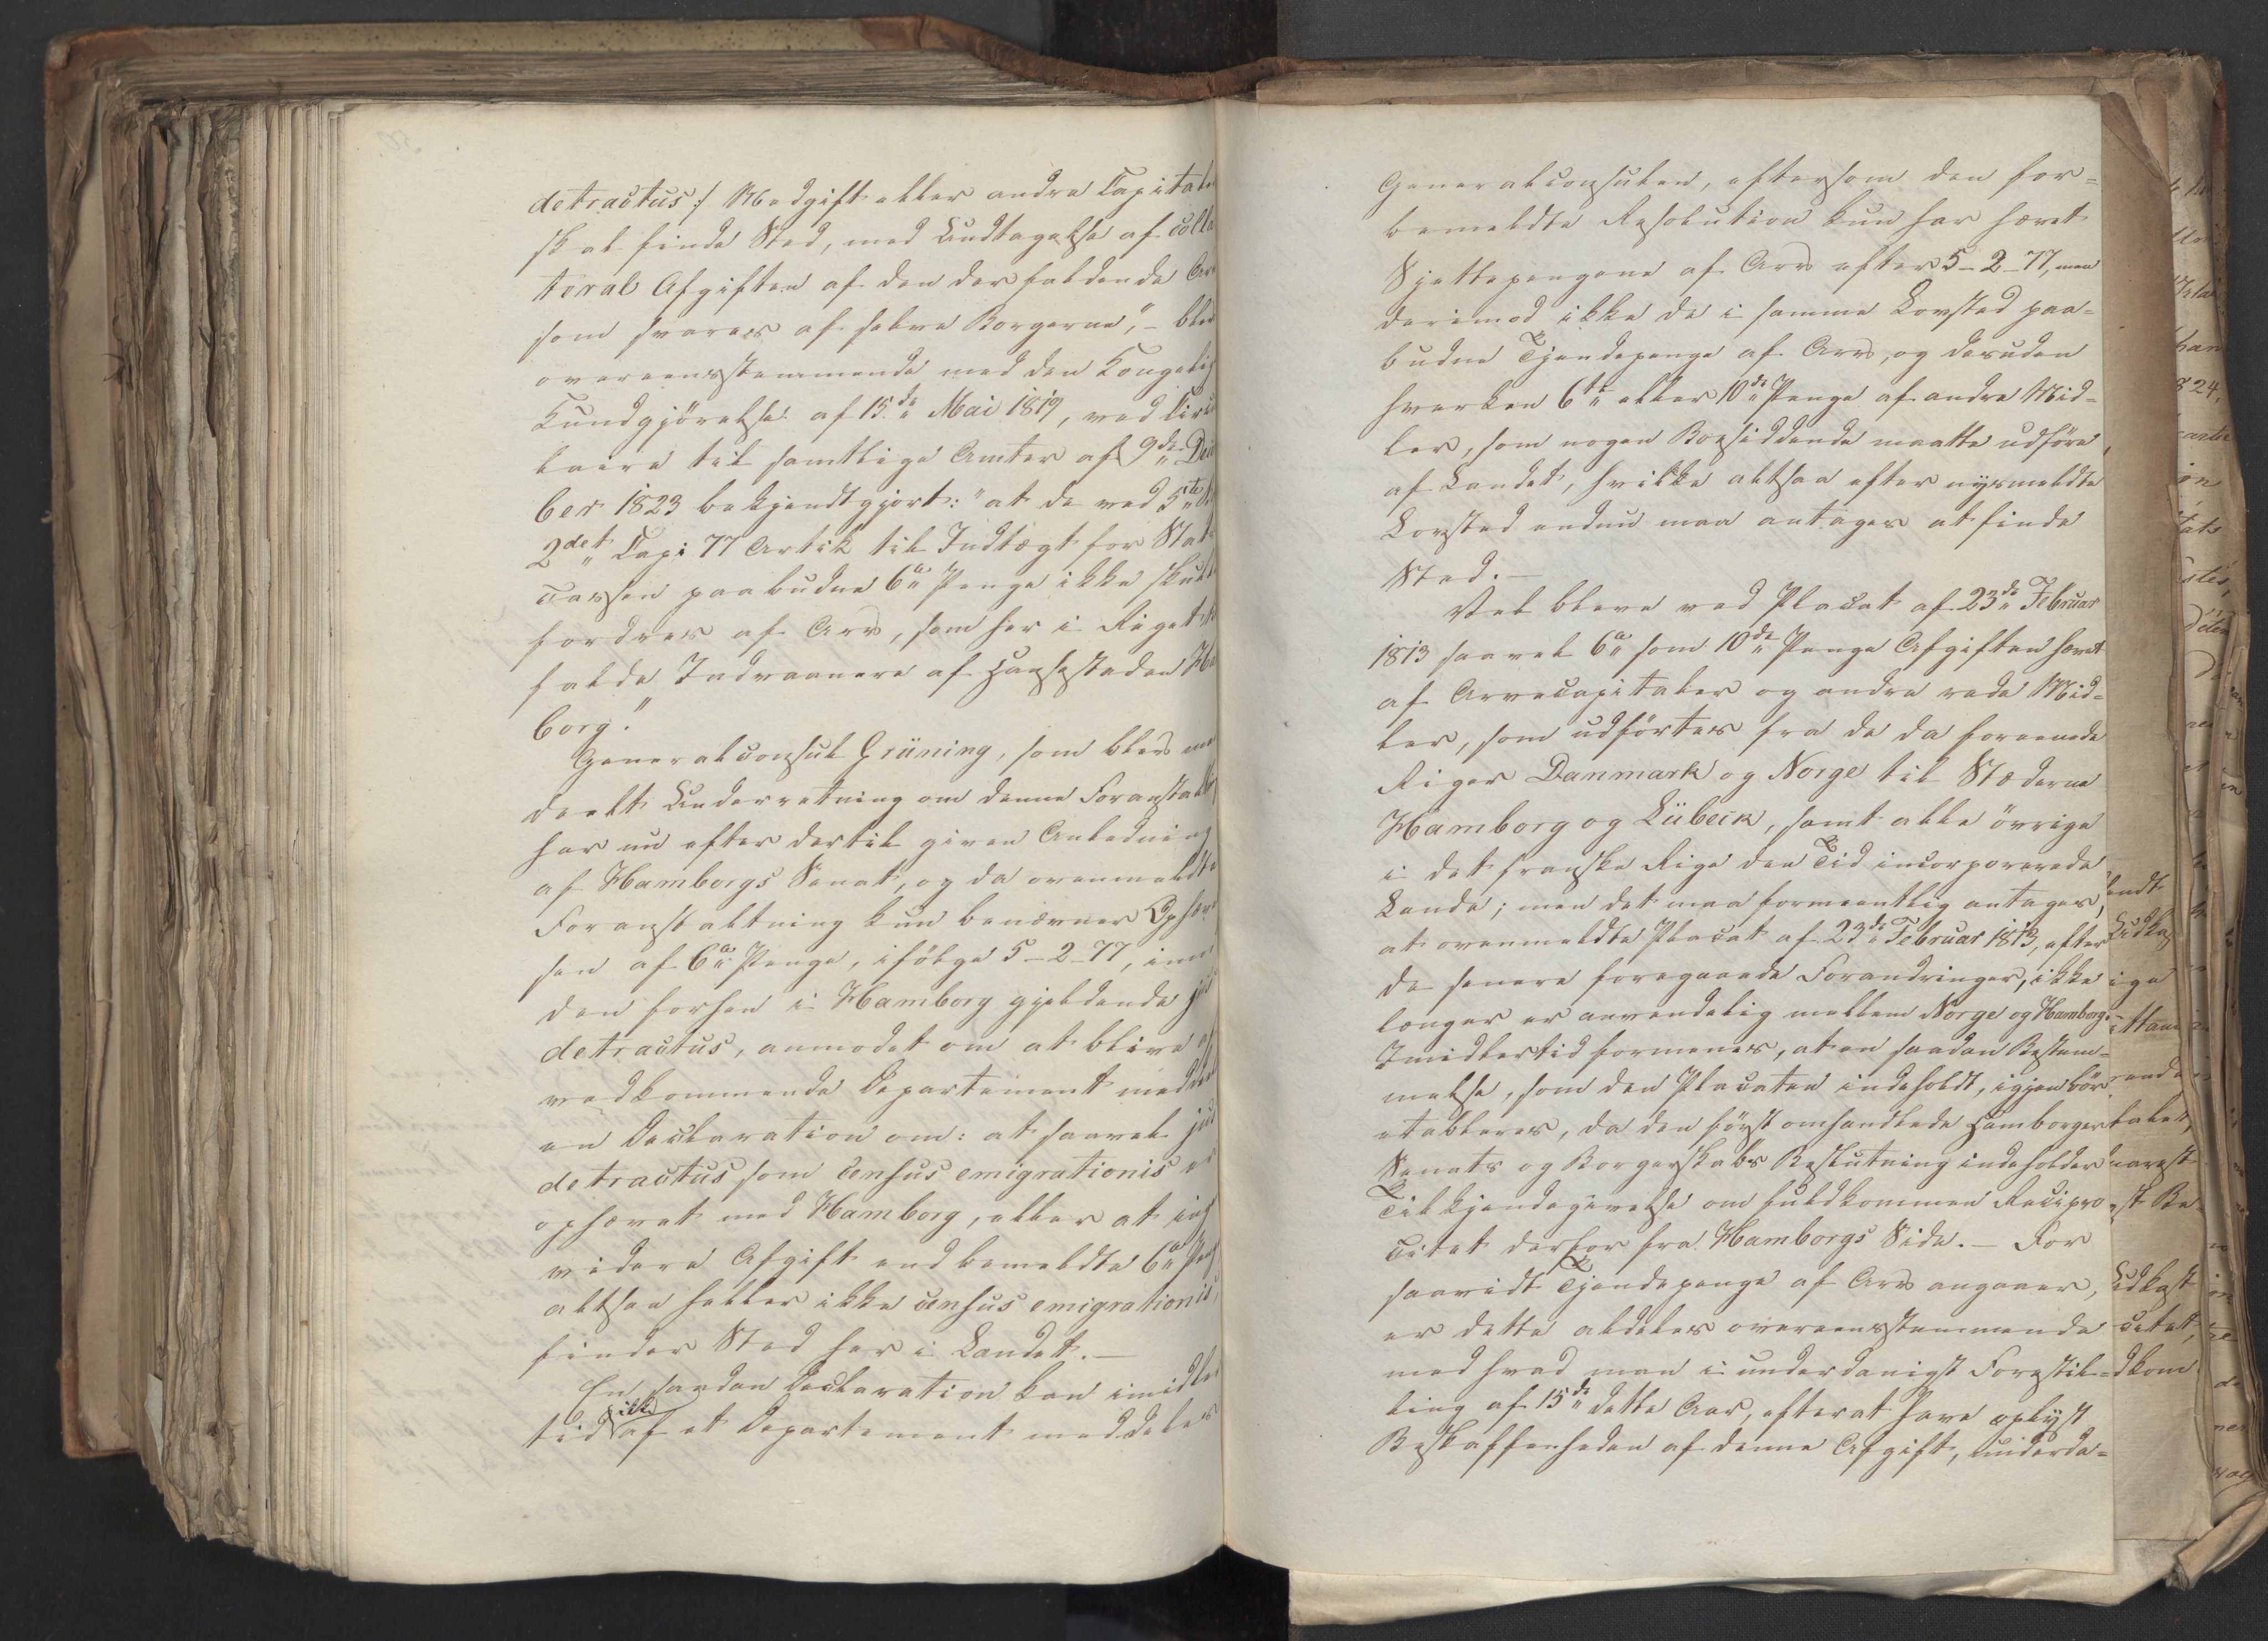 detractus :/ Medgift eller andre Capitaler
skal finde Sted, med Undtagelse af Colla
teral Afgiften af den der faldende Arv
som svares af selve Borgerne," – blev
overeensstemmende med den Kongelig
Kundgjörelse af 15de Mai 1819, ved Circu
laire til samtlige Amter af 9de Decb
ber 1823 bekjendtgjort: "at de ved 5te
2det Cap: 77 Artik til Indtægt for Stats
cassen paabudne 6te Penge ikke skulle
fordres af Arv, som her i Riget
falde Indvaanere af Hansestaden Ha
borg."
Generalconsul Grüning, som blev med
deelt Underretning om denne Foranstaltn
har nu efter dertil given Anledning
af Hamborgs Senat, og da ovenmeldte
Foranstaltning kun benævner Ophævel
sen af 6te Penge, ifölge 5–2–77,
den forhen i Hamborg gjeldende jus
detractus, anmodet om at blive af
vedkommende Departement meddeelt
en Declaration om: at saavel jus
detractus som Census emigrationis er
ophævet med Hamborg, eller at ing
videre Afgift end bemeldte 6te Peng
altsaa heller ikke census emigrationis,
finder Sted her i Landet. –
En saadan Declaration kan imidler
tid ikke af et Departement meddeles
Generalconsulen, eftersom den for=
bemeldte Resolution kun har hævet
Sjettepengene af Arv efter 5–2–77, men
derimod ikke de i samme Lovsted paa=
budne Tjendepenge af Arv, og desuden
hverken 6te eller 10de Penge af andre Mid=
ler, som nogen Boesiddende maatte udföre
af Landet, hvilke altsaa efter nysmeldte
Lovsted endnu maa antages at finde
Sted. –
Vel bleve ved Placat af 23de Februar
1813 saavel 6te som 10de Penge Afgiften hævet
af Arvecapitaler og andre rede Mid=
ler, som udförtes fra de da forenede
Riger Danmark og Norge til Stæderne
Hamborg og Lübeck, samt alle övrige
i det franske Rige den Tid incorporerede
Lande; men det maa formeentlig antages,
at ovenmeldte Placat af 23de Februar 1813, efter
de senere foregaaede Forandringer, ikke
længer er anvendelig mellem Norge og Hamborg. –
Imidlertid formenes, at en saadan Bestem=
melse, som den Placaten indeholdt, igjen bör
etableres, da den först omhandlede Hamborger
Senats og Borgerskabs Beslutning indeholder
Tilkjendegivelse om fuldkommen Recipro
citet derfor fra Hamborgs Side. – For
saavidt Tjendepenge af Arv angaaer,
er dette aldeles overeensstemmende
med hvad man i underdanigst Forestil=
ling af 15de dette Aar, efterat have oplyst
Beskaffenheden af denne Afgift, underda=